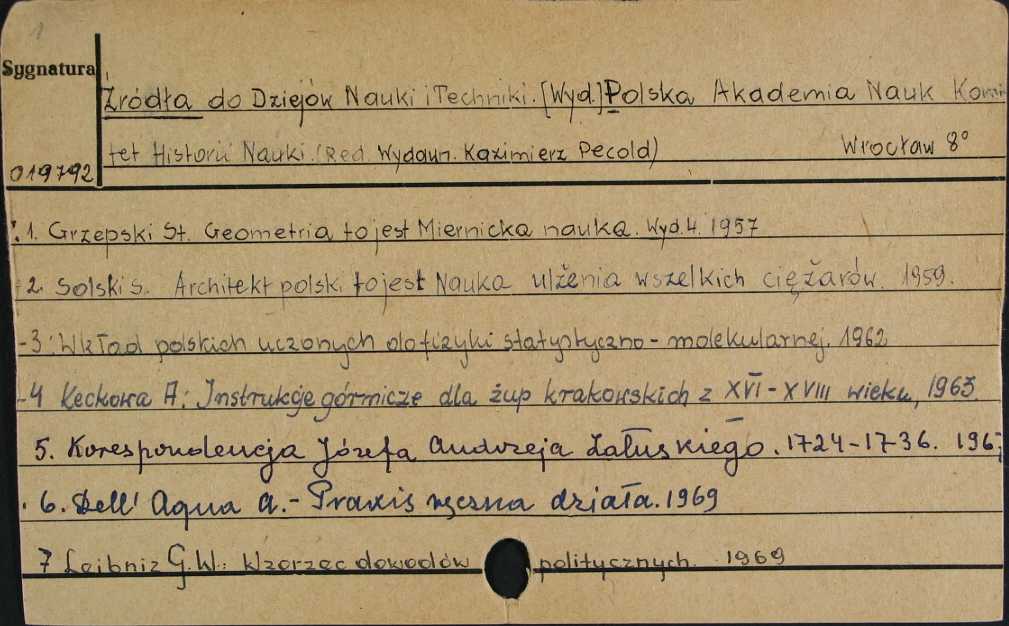 1
Sygnatura
Źródła do Dziejów Nauki i Techniki. [Wyd.] Polska Akademia Nauk Komi-
tet Historii Nauki. (Red Wydawn. Kazimierz Pecold) Wrocław 8°
019792
1. Grzepski St. Geometria to jest Miernicka nauka. Wyd. 4. 1957
2. Solski S. Architekt polski to jest Nauka ulżenia wszelkich ciężarów. 1959.
- 3: Wkład polskich uczonych do fizyki statystyczno - molekularnej. 1962
- 4 Keckowa A: Instrukcje górnicze dla żup krakowskich z XVI - XVIII wieku, 1963
5. Korespondencja Józefa Andrzeja Załuskiego. 1724-1736. 1967
6. Dell' Aqua A. - Praxis ręczna działa. 1969
7 Leibniz G.W.: Wzorzec dowodów politycznych. 1969